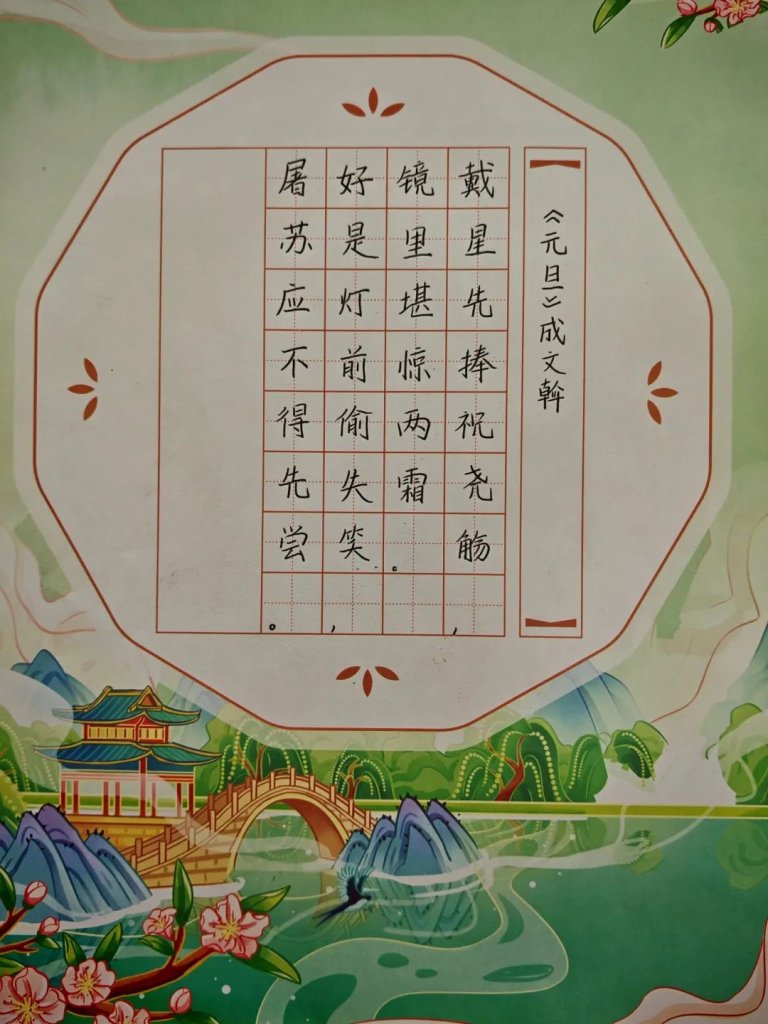 《元旦》成文斡
戴星先捧祝尧觞，
镜里堪惊两霜。
好是灯前偷失笑，
屠苏应不得先尝。